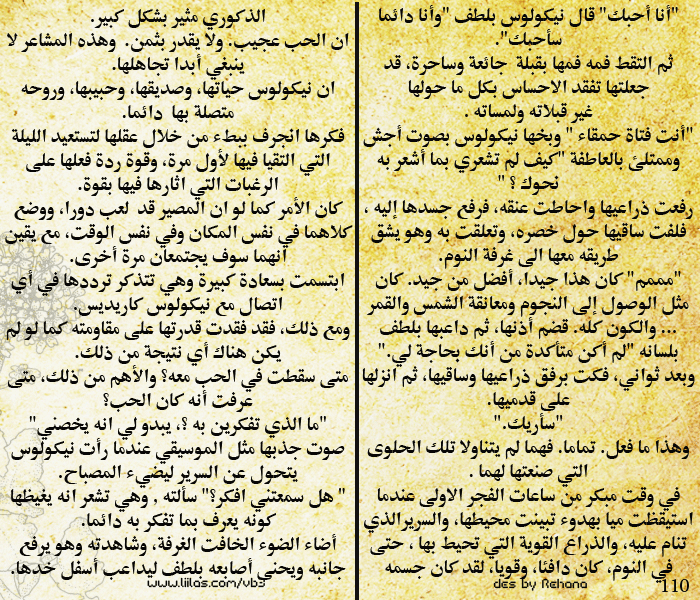 "أنا أحبك" قال نيكولوس بلطف "وأنا دائما
سأحبك".
ثم التقط فمه فمها بقبلة جائعة وساحرة، قد
جعلتها تفقد الاحساس بكل ما حولها
غير قبلاته ولمساته .
"أنت فتاة حمقاء " وبخها نيكولوس بصوت أجش
وممتلئ بالعاطفة "كيف لم تشعري بما أشعر به
نحوك ؟ "
رفعت ذراعيها واحاطت عنقه، فرفع جسدها إليه ،
فلفت ساقيها حول خصره، وتعلقت به وهو يشق
طريقه معها الى غرفة النوم.
"مممم" كان هذا جيدا، أفضل من جيد. كان
مثل الوصول إلى النجوم ومعانقة الشمس والقمر
... والكون كله. قضم أذنها، ثم داعبها بلطف
بلسانه "لم أكن متأكدة من أنك بحاجة لي."
وبعد ثواني، فكت برفق ذراعيها وساقيها، ثم انزلها
على قدميها.
"سأريك."
وهذا ما فعل. تماما. فهما لم يتناولا تلك الحلوى
التي صنعتها لهما .
في وقت مبكر من ساعات الفجر الاولى عندما
استيقظت ميا بهدوء تبينت محيطها، والسريرالذي
تنام عليه، والذراع القوية التي تحيط بها ، حتى
في النوم، كان دافئا، وقويا، لقد كان جسمه
des by Rehana
110
الذكوري مثير بشكل كبير.
ان الحب عجيب. ولا يقدر بثمن. وهذه المشاعر لا
ينبغي أبدا تجاهلها.
ان نيكولوس حياتها، وصديقها، وحبيبها، وروحه
متصلة بها دائما.
فكرها انجرف ببطء من خلال عقلها لتستعيد الليلة
التي التقيا فيها لأول مرة، وقوة ردة فعلها على
الرغبات التي اثارها فيها بقوة.
كان الأمر كما لو ان المصير قد لعب دورا، ووضع
كلاهما في نفس المكان وفي نفس الوقت، مع يقين
انهما سوف يجتمعان مرة أخرى.
ابتسمت بسعادة كبيرة وهي تتذكر ترددها في أي
اتصال مع نيكولوس كاريديس.
ومع ذلك، فقد فقدت قدرتها على مقاومته كما لو لم
يكن هناك أي نتيجة من ذلك.
متى سقطت في الحب معه؟ والأهم من ذلك، متى
عرفت أنه كان الحب؟
"ما الذي تفكرين به ؟، يبدو لي انه يخصني"
صوت جذبها مثل الموسيقي عندما رأت نيكولوس
يتحول عن السرير ليضيء المصباح.
" هل سمعتني افكر؟" سألته , وهي تشعر انه يغيظها
كونه يعرف بما تفكر به دائما.
أضاء الضوء الخافت الغرفة، وشاهدته وهو يرفع
جانبه ويحني أصابعه بلطف ليداعب أسفل خدها.
www.liilas.com/vb3